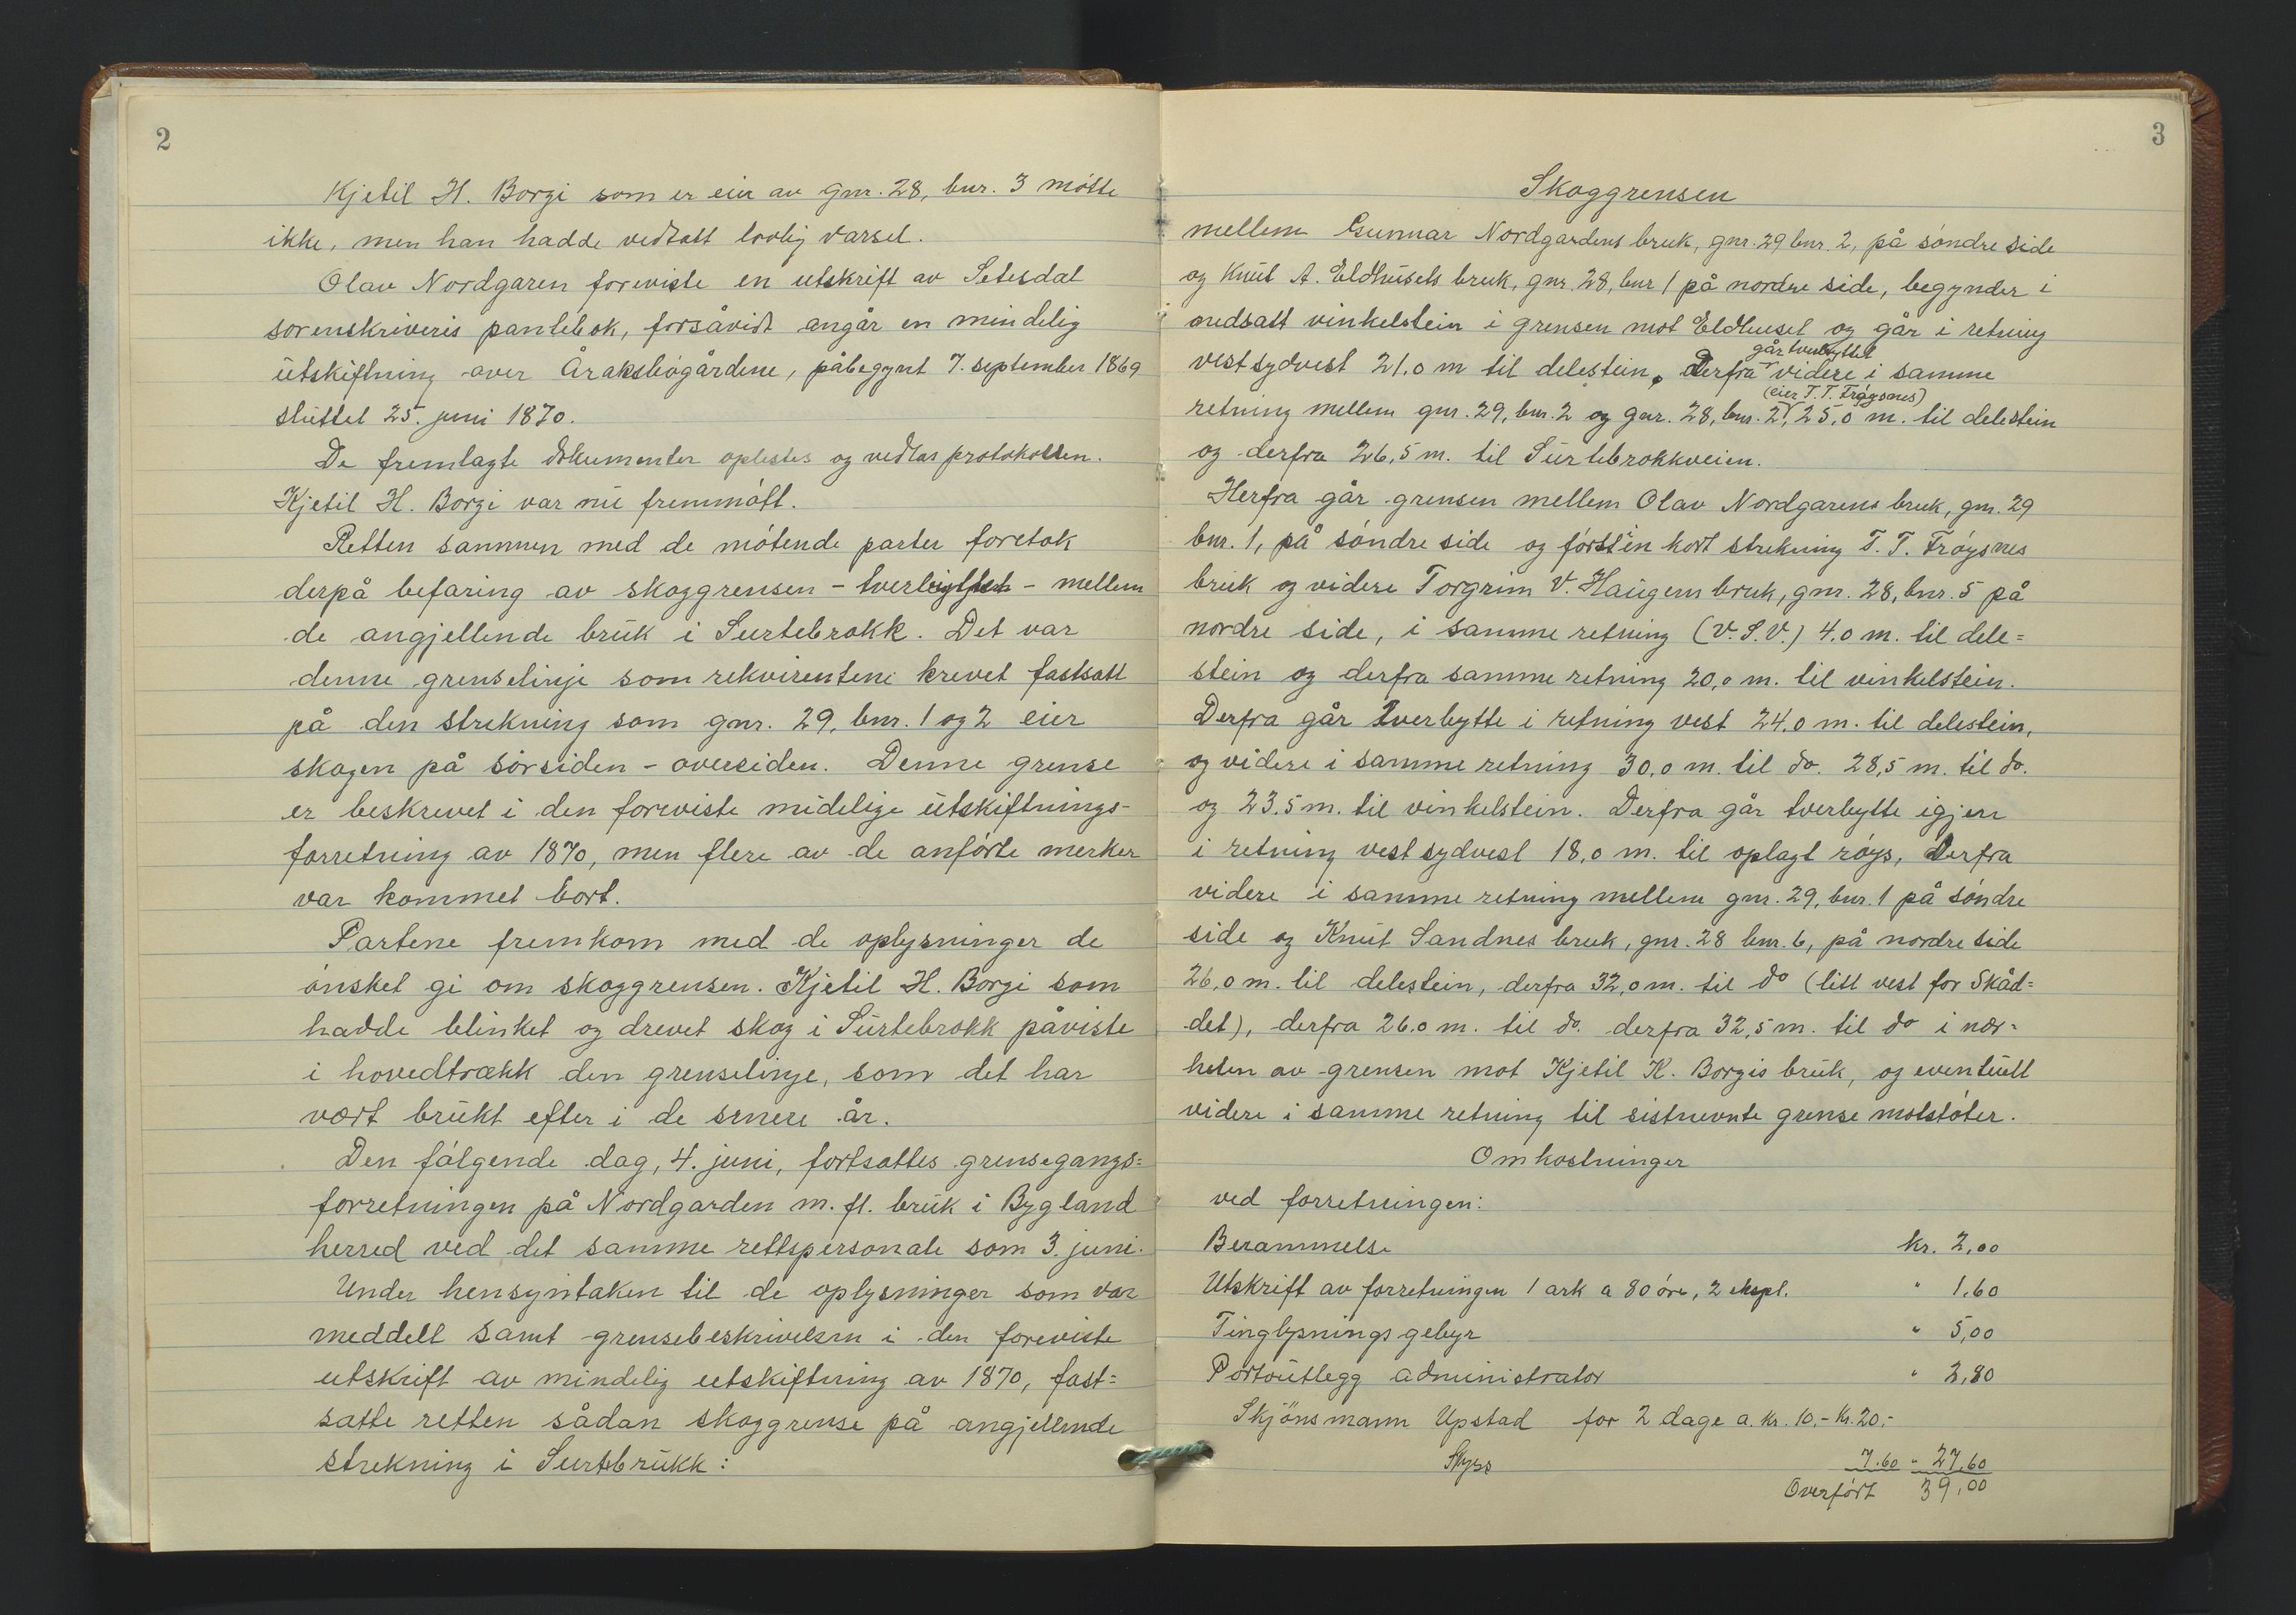 2
Kjetil H. Borgi som er eier av gnr. 28, bnr. 3 møtte
ikke, men han hadde vedtatt lovlig varsel.
Olav Nordgaren foreviste en utskrift av Setesdal
sorenskriveris pantebok, forsåvidt angår en mindelig
utskiftning over Åraksbøgårdene, påbegynt 7. september 1869
sluttet 25. juni 1870.
De fremlagte dokumenter oplestes og vedlas protokollen.
Kjetil H. Borgi var nu fremmøtt.
Retten sammen med de møtende parter foretok
derpå befaring av skoggrensen - tverbyttet - mellem
de angjellende bruk i Surtebrokk. Det var
denne grenselinje som rekvirentene krevet fastsatt
på den strekning som gnr. 29, bnr. 1 og 2 eier
skogen på sørsiden - oversiden. Denne grense
er beskrevet i den foreviste midelige utskiftnings-
forretning av 1870, men flere av de anførte merker
var kommet bort.
Partene fremkom med de oplysninger de
ønsket gi om skoggrensen. Kjetil H. Borgi som
hadde blinket og drevet skog i Surtebrokk påviste
i hovedtrækk den grenselinje, som det har
vært brukt efter i de senere år.
Den følgende dag, 4. juni, fortsattes grensegangs=
forretningen på Nordgarden m. fl. bruk i Bygland
herred ved det samme rettspersonale som 3. juni.
Under hensyntaken til de oplysninger som var
meddelt samt grensebeskrivelsen i den foreviste
utskrift av mindelig utskiftning av 1870, fast=
satte retten sådan skoggrense på angjellende
strekning i Surtebrukk:
3
Skoggrensen
mellem Gunnar Nordgardens bruk, gnr. 29 bnr. 2, på søndre side
og Knut A. Eldhusets bruk, gnr. 28, bnr 1 på nordre side, begynder i
nedsatt vinkelstein i grensen mot Eldhuset og går i retning
går tverbyttet
vestsydvest 21.0 m til delestein. Derfra videre i samme
(eier T. T. Frøysnes)
retning mellem gnr. 29, bnr. 2 og gnr. 28, bnr. 2, 25,0 m. til delestein
og derfra 26,5 m. til Surtebrokkveien.
Herfra går grensen mellem Olav Nordgarens bruk, gnr. 29
bnr. 1, på søndre side og først en kort strekning T. T. Frøysnes
bruk og videre Torgrim V. Haugens bruk, gnr. 28, bnr. 5 på
nordre side, i samme retning (V. S. V.) 4.0 m. til dele=
stein og derfra samme retning 20,0 m. til vinkelstein.
Derfra går tverbytte i retning vest 24.0 m. til delestein,
og videre i samme retning 30,0 m. til do. 28,5 m. til do.
og 23.5 m. til vinkelstein. Derfra går tverbytte igjen
i retning vestsydvest 18,0 m. til oplagt røys, Derfra
videre i samme retning mellem gnr. 29, bnr. 1 på søndre
side og Knut Sandnes bruk, gnr. 28 bnr. 6, på nordre side
26,0 m. til delestein, derfra 32,0 m. til do (litt vest for Skåd=
det), derfra 26.0 m. til do. derfra 32,5 m. til do i nær=
heten av grensen mot Kjetil K. Borgis bruk, og eventuelt
videre i samme retning til sistnevnte grense motstøter.
Omkostninger
ved forretningen:
Berammelse kr. 2,00
Utskrift av forretningen 1 ark a 80 øre, 2 ekspl. " 1.60
Tinglysningsgebyr " 5,00
Portoutlegg administrator " 2,80
Skjönsmann Upstad for 2 dage a. kr. 10.- kr. 20.-
Skyss 7.60 " 27,60
Overført 39,00